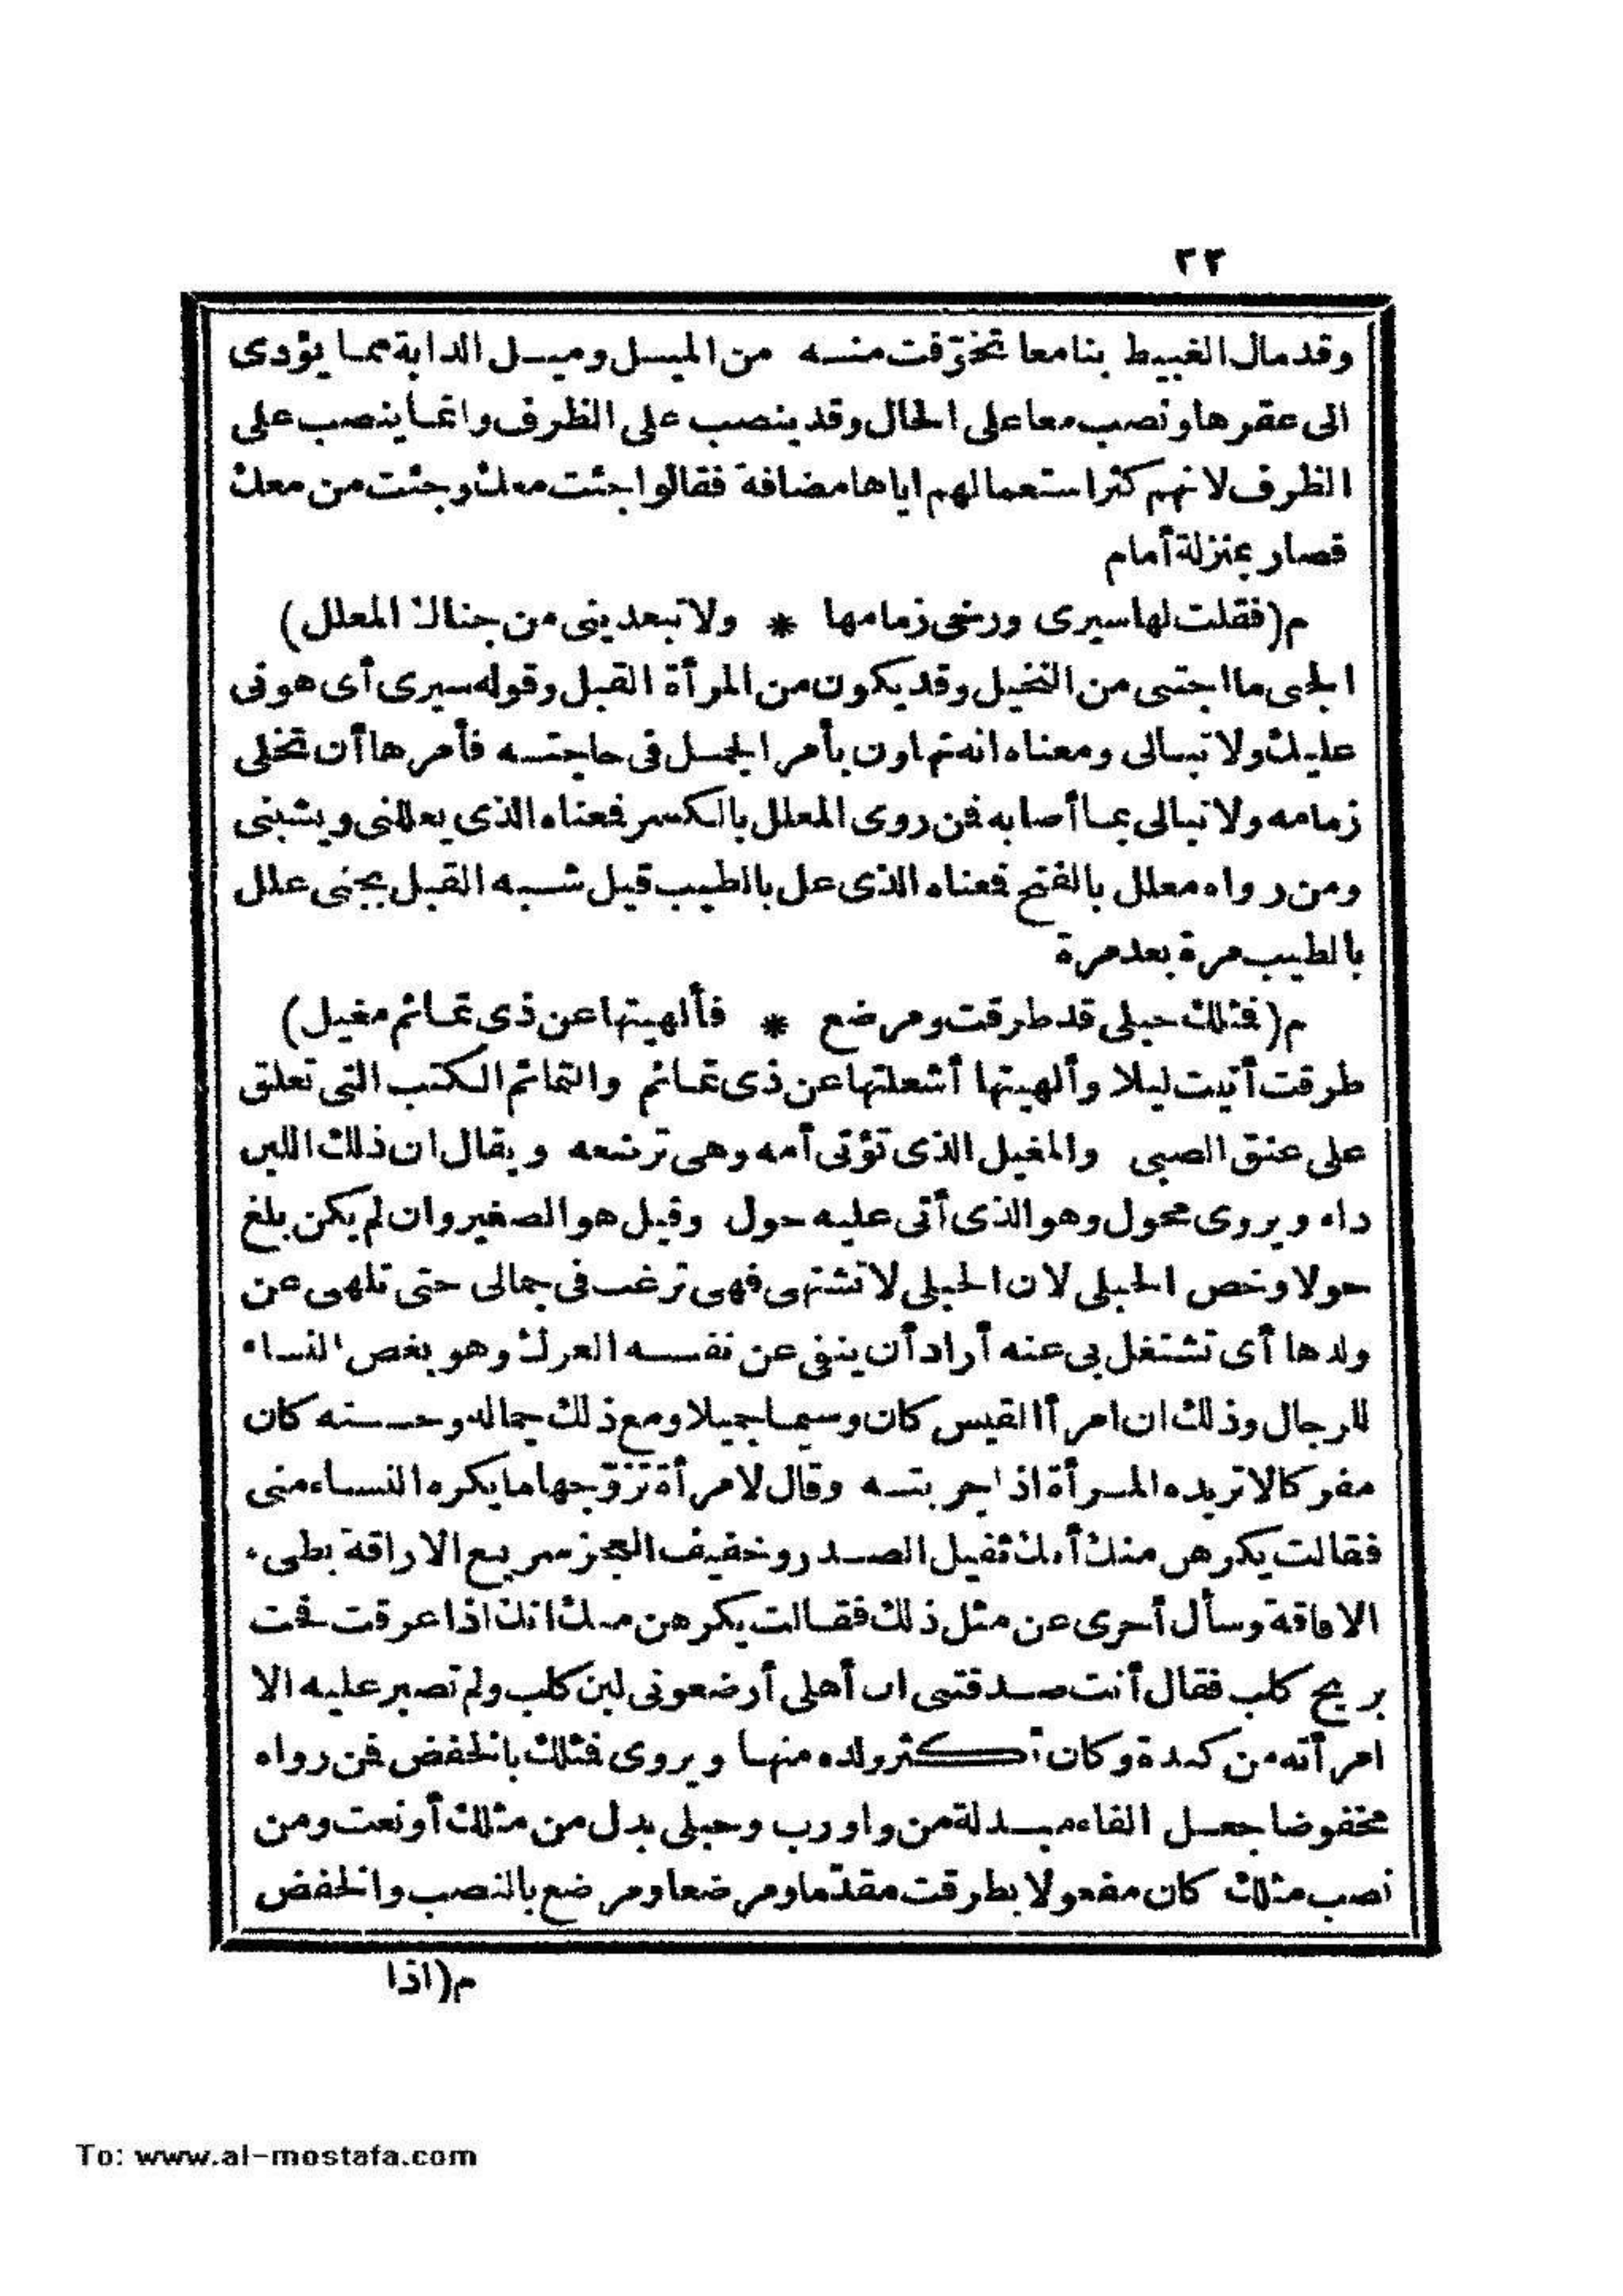 ٣٢
وقد مال الغبيط بنا معا تخوّفت منه من الميل وميل الدابة مما يؤدى
الى عقرها ونصب معا على الحال وقد ينصب على الظرف وانما ينصب على
الظرف لانهم كثر استعمالهم اياها مضافة فقالوا جئت معك وجئت من معك
فصار بمنزلة أمام
م(فقلت لها سيرى ورخى زمامها * ولا تبعدينى من جناك المعلل)
الجنى ما اجتنى من النخيل وقد يكون من المرأة القبل وقوله سيرى أى هونى
عليك ولا تبالى ومعناه انه تهاون بأمر الجمل فى حاجته فأمرها أن تخلى
زمامه ولا تبالى بما أصابه فمن روى المعلل بالكسر فمعناه الذى يعللنى ويشبنى
ومن رواه معلل بالفتح فمعناه الذى عل بالطيب قيل شبه القبل بجنى علل
بالطيب مرة بعد مرة
م(فمثلك حبلى قد طرقت ومرضع * فألهيتها عن ذى تمائم مغيل)
طرقت أتيت ليلا وألهيتها أشعلتها عن ذى تمائم والتمائم الكتب التى تعلق
على عنق الصبى والمغيل الذى تؤتى أمه وهى ترضعه ويقال ان ذلك اللبن
داء ويروى محول وهو الذى أتى عليه حول وقيل هو الصغير وان لم يكن بلغ
حولا وخص الحبلى لان الحبلى لا تشتهى فهى ترغب فى جمالى حتى تلهى عن
ولدها أى تشتغل بى عنه أراد أن ينفى عن نفسه العرك وهو بغض النساء
للرجال وذلك ان امرأ القيس كان وسيما جميلا ومع ذلك جماله وحسنه كان
مفركا لا تريده المرأة اذا جربته وقال لامرأة تزوّجها ما يكره النساء منى
فقالت يكرهن منك أنك ثقيل الصدر وخفيف العجز سريع الاراقة بطىء
الافاقة وسأل أخرى عن مثل ذلك فقالت يكرهن منك انك اذا عرقت فحت
بريح كلب فقال أنت صدقتنى ان أهلى أرضعونى لبن كلب ولم تصبر عليه الا
امرأته من كندة وكان أكثر ولده منها ويروى فمثلك بالخفض فمن رواه
مخفوضا جعل الفاء مبدلة من واو رب وحبلى بدل من مثلك أو نعت ومن
نصب مثلك كان مفعولا بطرقت مقدّما ومرضعا ومرضع بالنصب والخفض
م(اذا
To: www.al-mostafa.com